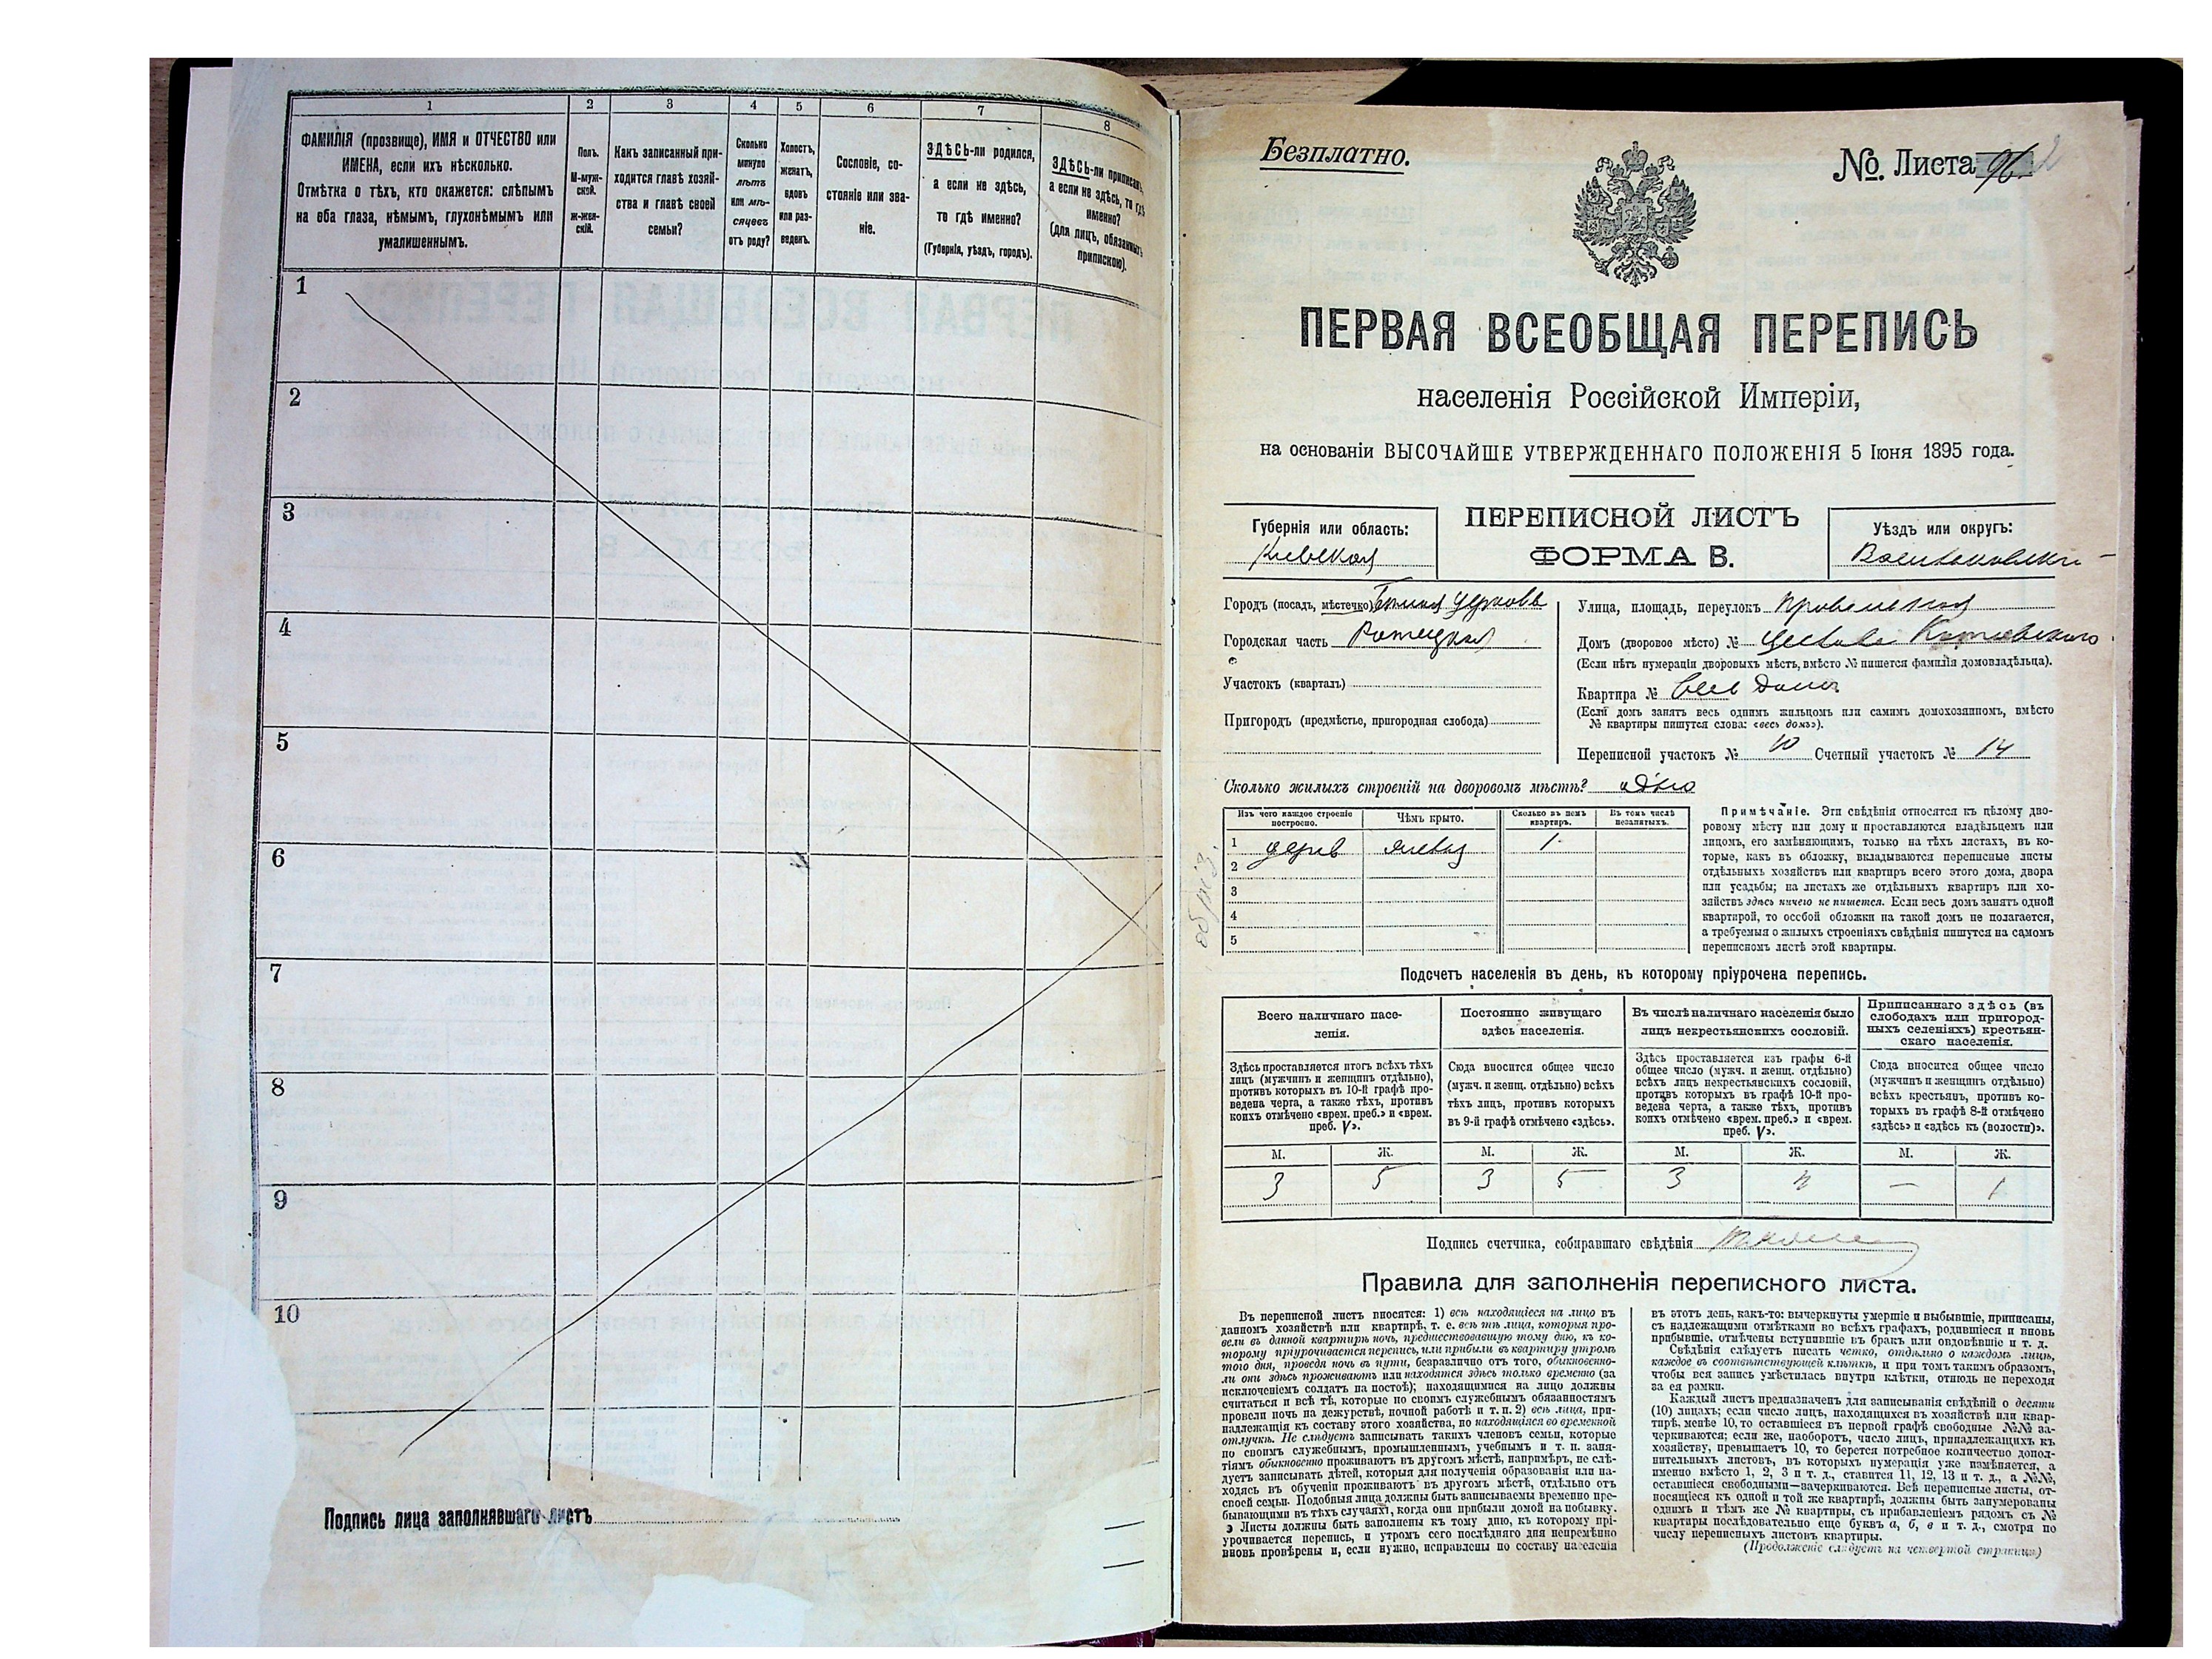 1
2
3
4
5
6
7
8
ФАМИЛІЯ (прозвище), ИМЯ и ОТЧЕСТВО или
ИМЕНА, если ихъ нѣсколько.
Отмѣтка о тѣхъ, кто окажется: слѣпымъ
на оба глаза, нѣмымъ, глухонѣмымъ или
умалишеннымъ.
Полъ.
М-муж-
ской.
Ж-жен-
скій.
Какъ записанный при-
ходится главѣ хозяй-
ства и главѣ своей
семьи?
Сколько
минуло
лѣтъ
или мѣ-
сяцевъ
отъ роду?
Холостъ,
женатъ,
вдовъ
или раз-
веденъ.
Сословіе, со-
стояніе или зва-
ніе.
ЗДѢСЬ-ли родился,
а если не здѣсь,
то гдѣ именно?
(Губернія, уѣздъ, городъ).
ЗДѢСЬ-ли приписанъ,
а если не здѣсь, то гдѣ
именно?
(для лицъ, обязанныхъ
припискою).
1
2
3
4
5
6
7
8
9
10
Подпись лица заполнявшаго листъ
Безплатно.
№. Листа 96
ПЕРВАЯ ВСЕОБЩАЯ ПЕРЕПИСЬ
населенія Россійской Имперіи,
на основаніи ВЫСОЧАЙШЕ УТВЕРЖДЕННАГО ПОЛОЖЕНІЯ 5 Іюня 1895 года.
Губернія или область:
Кіевская
ПЕРЕПИСНОЙ ЛИСТЪ
ФОРМА В.
Уѣздъ или округъ:
Васильковскій
Городъ (посадъ, мѣстечко) Бѣлая Церковь
Городская часть
Участокъ (кварталъ)
Пригородъ (предмѣстье, пригородная слобода)
Улица, площадь, переулокъ
Домъ (дворовое мѣсто) №
(Если нѣтъ нумераціи дворовыхъ мѣстъ, вмѣсто № пишется фамилія домовладѣльца).
Квартира № весь домъ
(Если домъ занятъ весь однимъ жильцомъ или самимъ домохозяиномъ, вмѣсто
№ квартиры пишутся слова: «весь домъ»).
Переписной участокъ № 10 Счетный участокъ № 14
Сколько жилыхъ строеній на дворовомъ мѣстѣ? одно
Изъ чего каждое строеніе
построено.
Чѣмъ крыто.
Сколько въ немъ
квартиръ.
Въ томъ числѣ
незанятыхъ.
1 дерев 1
2
3
4
5
Примѣчаніе. Эти свѣдѣнія относятся къ цѣлому дво-
ровому мѣсту или дому и проставляются владѣльцемъ или
лицомъ, его замѣняющимъ, только на тѣхъ листахъ, въ ко-
торые, какъ въ обложку, вкладываются переписные листы
отдѣльныхъ хозяйствъ или квартиръ всего этого дома, двора
или усадьбы; на листахъ же отдѣльныхъ квартиръ или хо-
зяйствъ здѣсь ничего не пишется. Если весь домъ занятъ одной
квартирой, то особой обложки на такой домъ не полагается,
а требуемыя о жилыхъ строеніяхъ свѣдѣнія пишутся на самомъ
переписномъ листѣ этой квартиры.
Подсчетъ населенія въ день, къ которому пріурочена перепись.
Всего наличнаго насе-
ленія.
Здѣсь проставляется итогъ всѣхъ тѣхъ
лицъ (мужчинъ и женщинъ отдѣльно),
противъ которыхъ въ 10-й графѣ про-
ведена черта, а также тѣхъ, противъ
коихъ отмѣчено «врем. преб.» и «врем.
преб. V».
Постоянно живущаго
здѣсь населенія.
Сюда вносится общее число
(мужч. и женщ. отдѣльно) всѣхъ
тѣхъ лицъ, противъ которыхъ
въ 9-й графѣ отмѣчено «здѣсь».
Въ числѣ наличнаго населенія было
лицъ некрестьянскихъ сословій.
Здѣсь проставляется изъ графы 6-й
общее число (мужч. и женщ. отдѣльно)
всѣхъ лицъ некрестьянскихъ сословій,
противъ которыхъ въ графѣ 10-й про-
ведена черта, а также тѣхъ, противъ
коихъ отмѣчено «врем. преб.» и «врем.
преб. V».
Приписаннаго здѣсь (въ
слободахъ или пригород-
ныхъ селеніяхъ) крестьян-
скаго населенія.
Сюда вносится общее число
(мужчинъ и женщинъ отдѣльно)
всѣхъ крестьянъ, противъ ко-
торыхъ въ графѣ 8-й отмѣчено
«здѣсь» и «здѣсь къ (волости)».
М. Ж. М. Ж. М. Ж. М. Ж.
3 5 3 5 3 — 1
Подпись счетчика, собиравшаго свѣдѣнія
Правила для заполненія переписного листа.
Въ переписной листъ вносятся: 1) всѣ находящіеся на лицо въ
данномъ хозяйствѣ или квартирѣ, т. е. всѣ тѣ лица, которыя про-
вели въ данной квартирѣ ночь, предшествовавшую тому дню, къ ко-
торому пріурочивается перепись, или прибыли въ квартиру утромъ
того дня, проведя ночь въ пути, безразлично отъ того, обыкновенно-
ли они здѣсь проживаютъ или находятся здѣсь только временно (за
исключеніемъ солдатъ на постоѣ); находящимися на лицо должны
считаться и всѣ тѣ, которые по своимъ служебнымъ обязанностямъ
провели ночь на дежурствѣ, ночной работѣ и т. п. 2) всѣ лица, при-
надлежащія къ составу этого хозяйства, но находящіяся во временной
отлучкѣ. Не слѣдуетъ записывать такихъ членовъ семьи, которые
по своимъ служебнымъ, промышленнымъ, учебнымъ и т. п. заня-
тіямъ обыкновенно проживаютъ въ другомъ мѣстѣ, напримѣръ, не слѣ-
дуетъ записывать дѣтей, которыя для полученія образованія или на-
ходясь въ обученіи проживаютъ въ другомъ мѣстѣ, отдѣльно отъ
своей семьи. Подобныя лица должны быть записываемы временно пре-
бывающими въ тѣхъ случаяхъ, когда они прибыли домой на побывку.
Листы должны быть заполнены къ тому дню, къ которому прі-
урочивается перепись, и утромъ сего послѣдняго дня непремѣнно
вновь провѣрены и, если нужно, исправлены по составу населенія
въ этотъ день, какъ-то: вычеркнуты умершіе и выбывшіе, приписаны,
съ надлежащими отмѣтками во всѣхъ графахъ, родившіеся и вновь
прибывшіе, отмѣчены вступившіе въ бракъ или овдовѣвшіе и т. д.
Свѣдѣнія слѣдуетъ писать четко, отдѣльно о каждомъ лицѣ,
каждое въ соотвѣтствующей клѣткѣ, и при томъ такимъ образомъ,
чтобы вся запись умѣстилась внутри клѣтки, отнюдь не переходя
за ея рамки.
Каждый листъ предназначенъ для записыванія свѣдѣній о десяти
(10) лицахъ; если число лицъ, находящихся въ хозяйствѣ или квар-
тирѣ, менѣе 10, то оставшіеся въ первой графѣ свободные №№ за-
черкиваются; если же, наоборотъ, число лицъ, принадлежащихъ къ
хозяйству, превышаетъ 10, то берется потребное количество допол-
нительныхъ листовъ, въ которыхъ нумерація уже измѣняется, а
именно вмѣсто 1, 2, 3 и т. д., ставится 11, 12, 13 и т. д., а №№,
оставшіеся свободными—зачеркиваются. Всѣ переписные листы, от-
носящіеся къ одной и той же квартирѣ, должны быть занумерованы
однимъ и тѣмъ же № квартиры, съ прибавленіемъ рядомъ съ №
квартиры послѣдовательно еще буквъ а, б, в и т. д., смотря по
числу переписныхъ листовъ квартиры.
(Продолженіе слѣдуетъ на четвертой страницѣ)